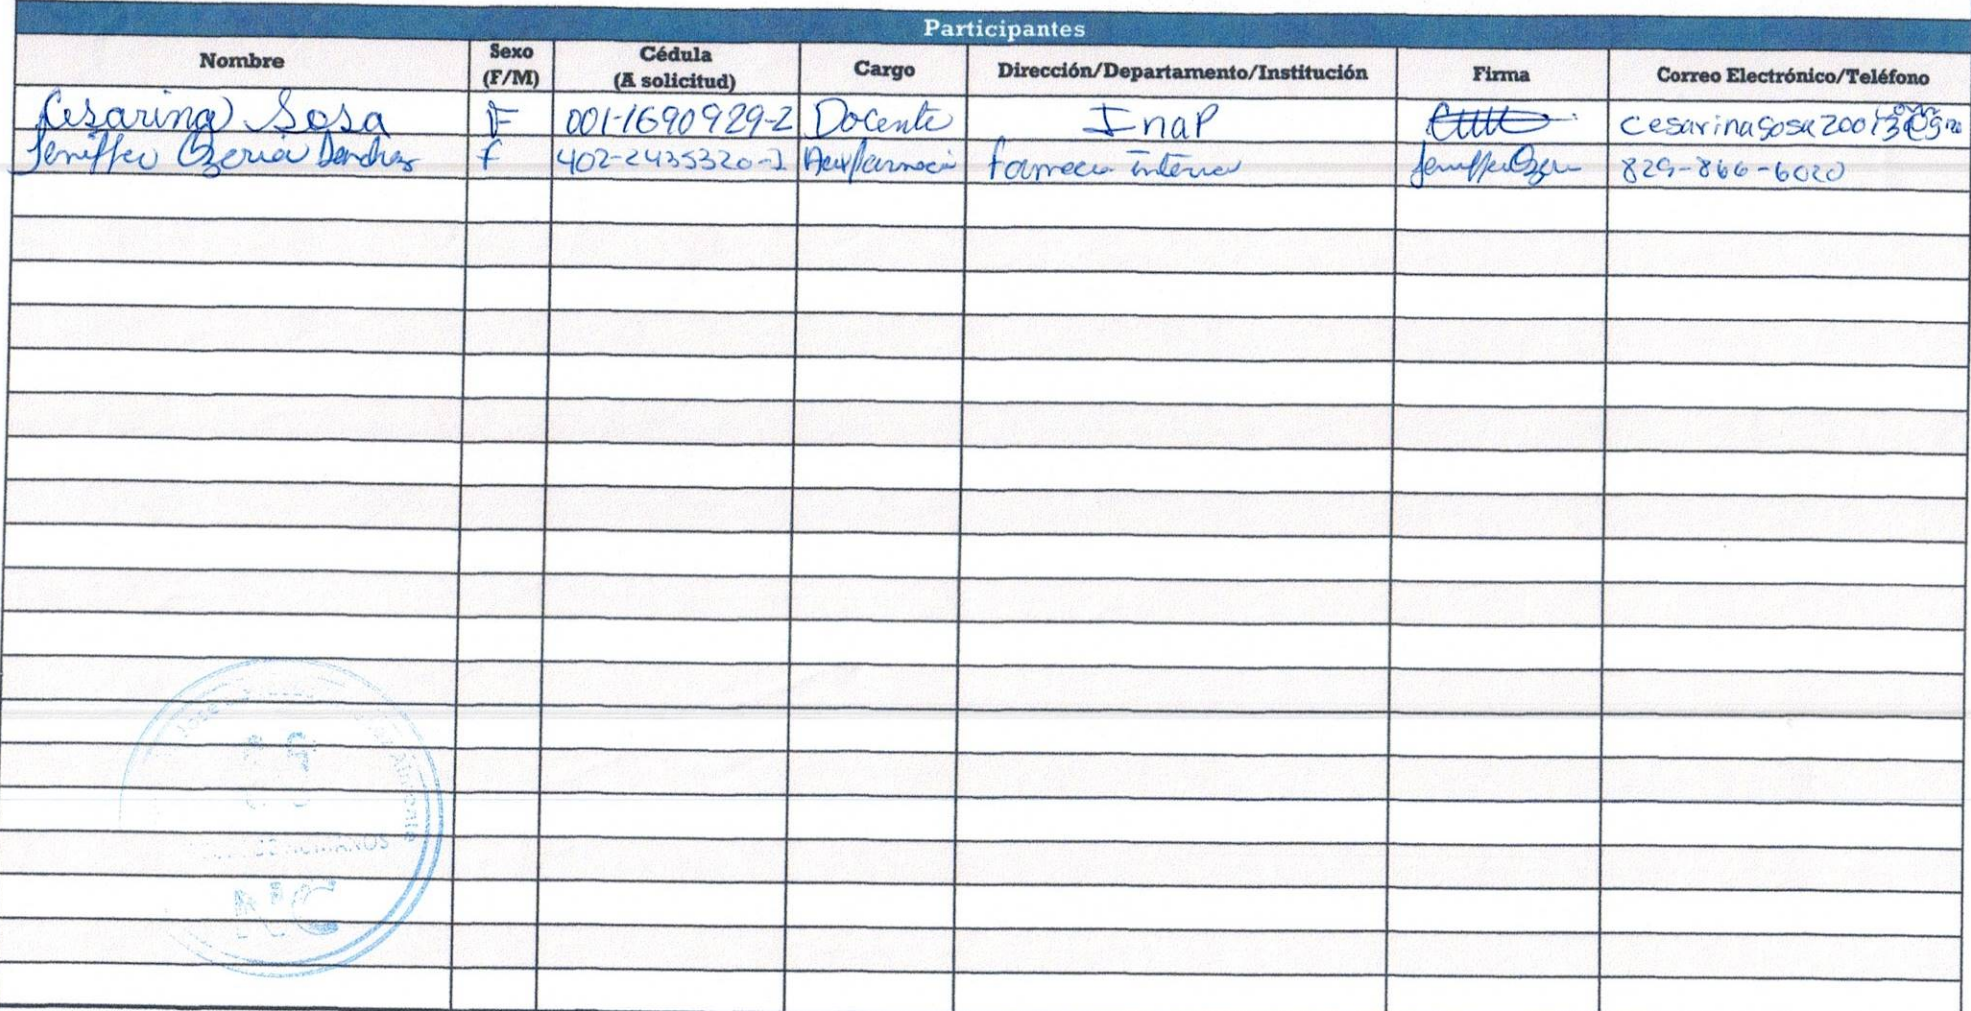 Participantes
Nombre Sexo (F/M) Cédula (A solicitud) Cargo Dirección/Departamento/Institución Firma Correo Electrónico/Teléfono
Cesarina Sosa F 001-1690929-2 Docente Inap cesarinasosa20013@
Jeniffer Ozoria F 402-2435320-1 farmacia interna 829-866-6020
José
Almonte
HUMANOS